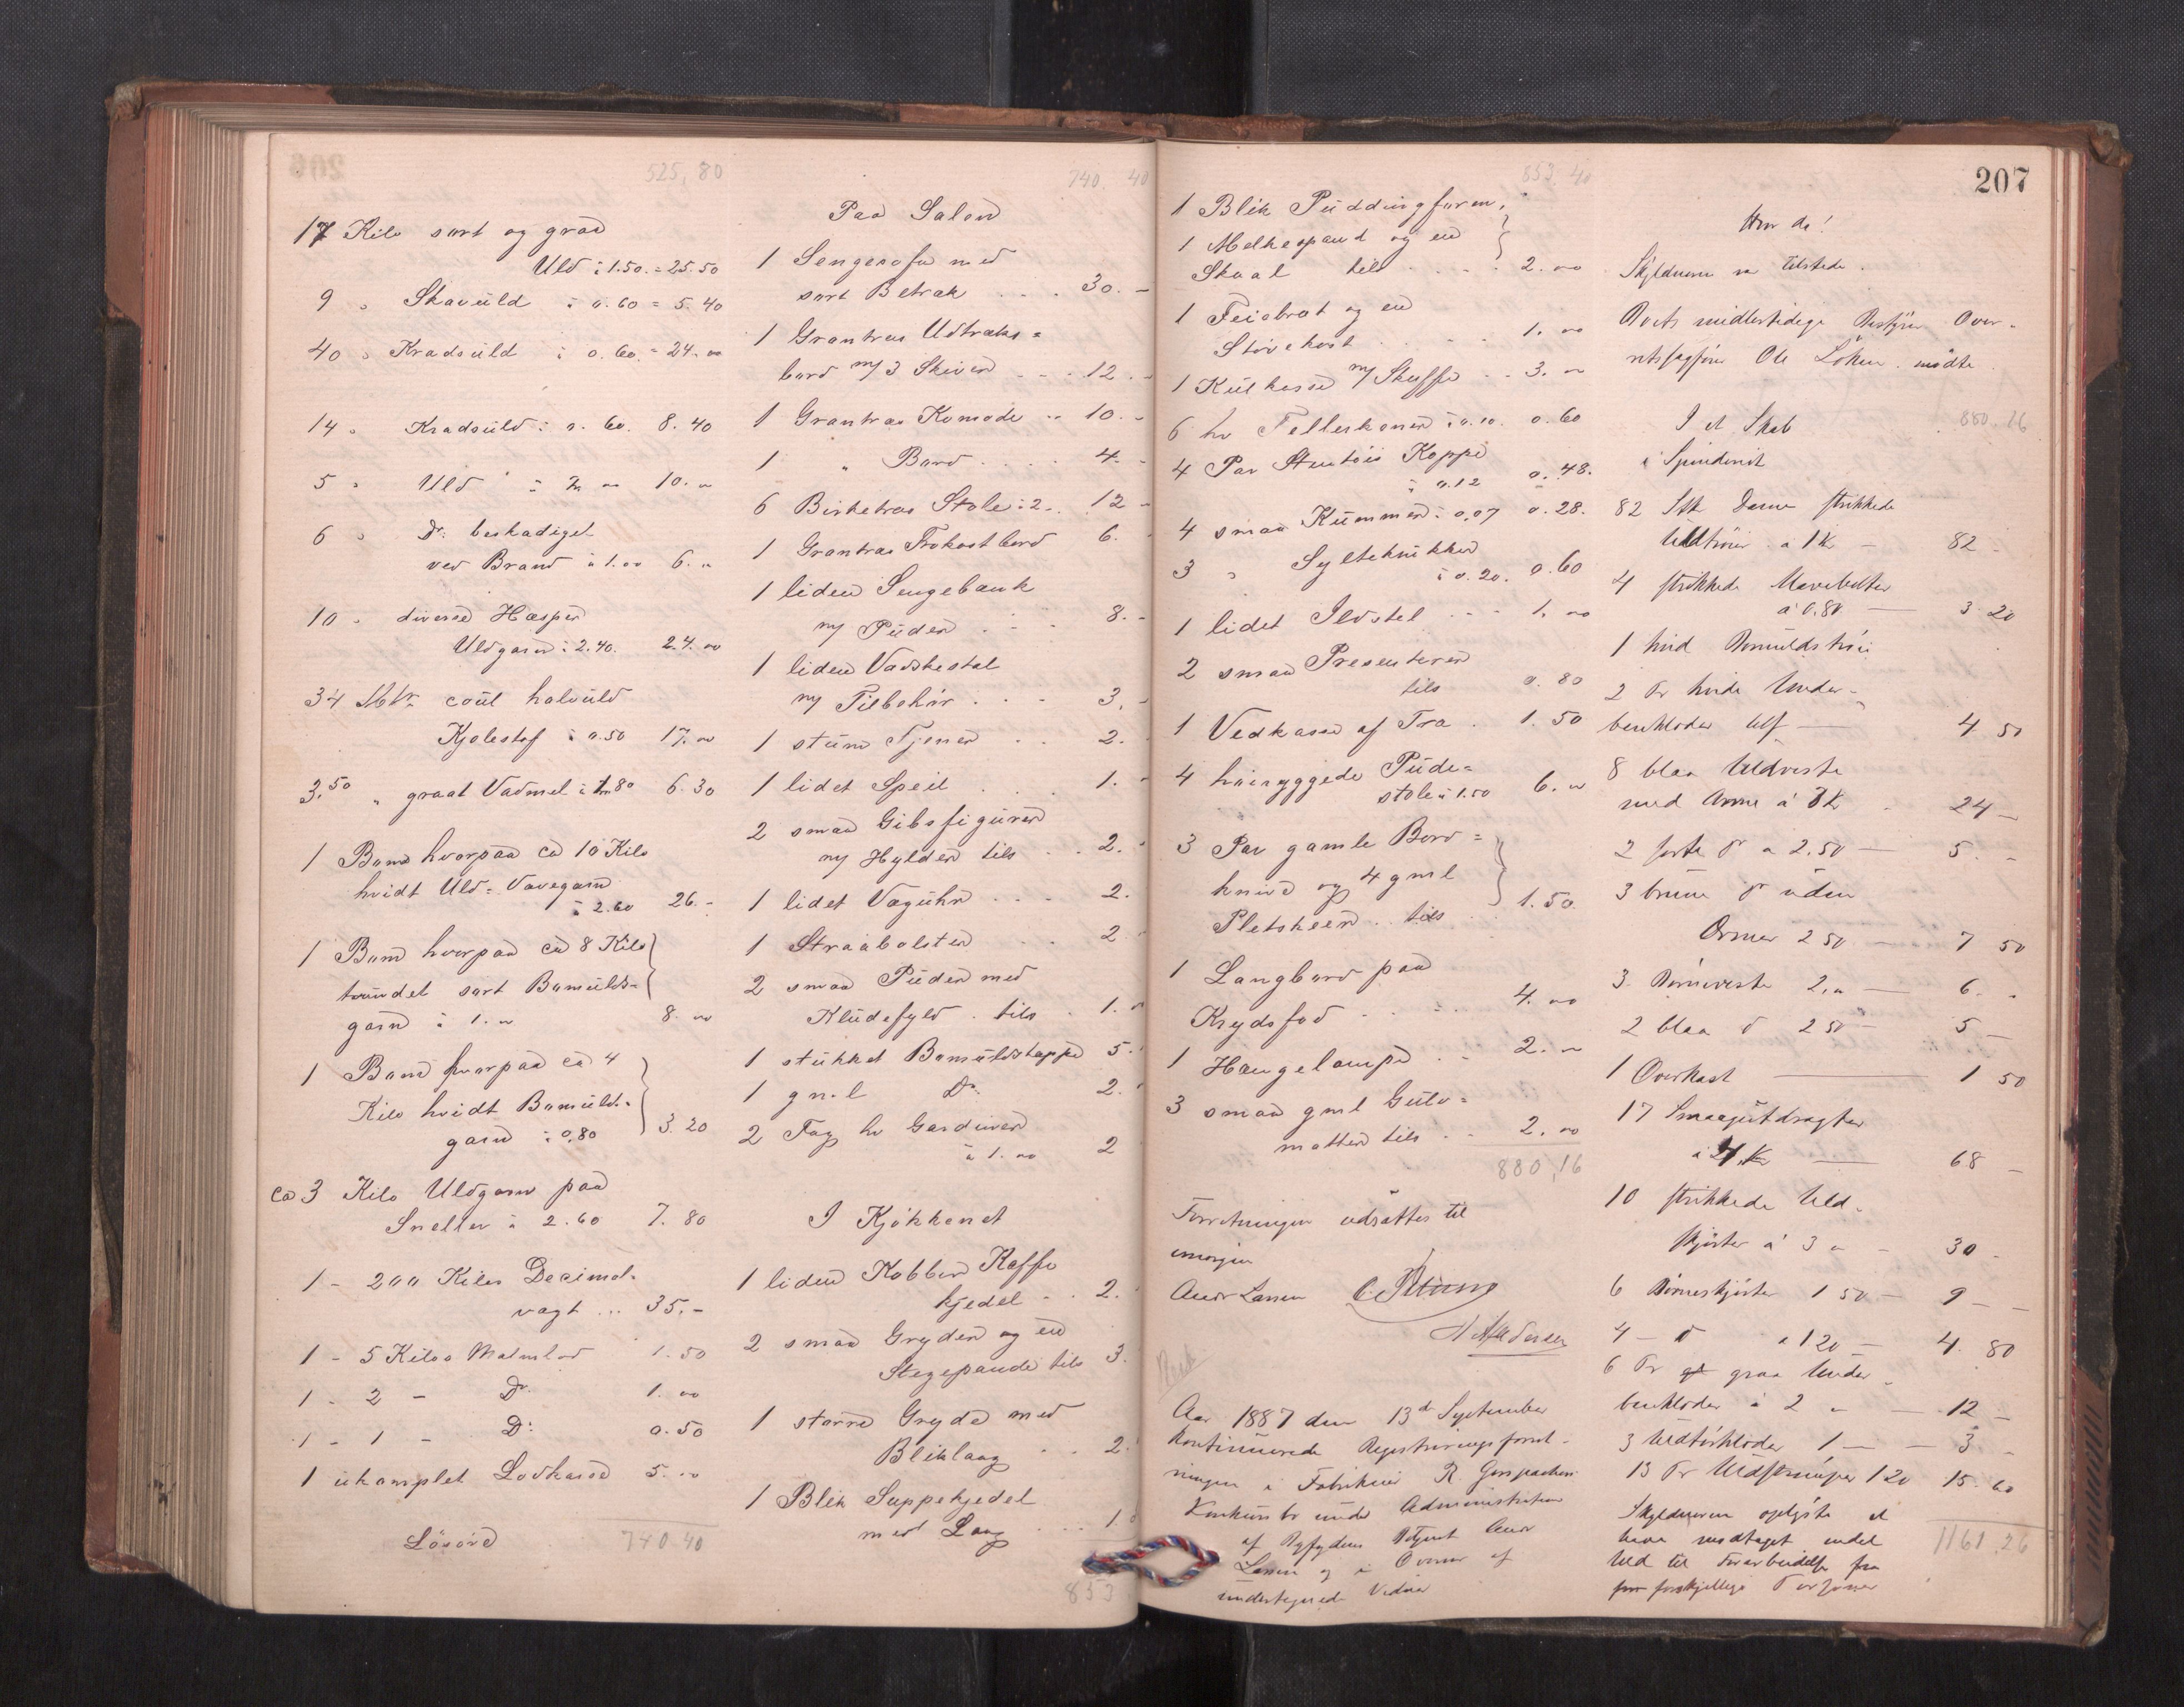 525,80
17 Kilo sort og graa
Uld à 1.50. = 25.50
9 " Skavuld à 0.60 = 5.40
40 " Kradsuld à 0.60. = 24.00
14 " Kradsuld à 0.60. 8.40
5 " Uld à 2.00 10.00
6 " Do beskadiget
ved Brand à 1.00 6.00
10 " diverse Hasper
Uldgarn à 2.40. 24.00
34 Mtr coul halvuld
Kjolestof à 0.50 17.00
3,50 " graat Vadmel à 1.80 6.30
1 Bom hvorpaa ca 10 Kilo
hvidt Uld-Vævegarn
à 2.60 26.-
1 Bom hvorpaa ca 8 Kilo
tvundet sort Bomulds-
garn à 1.00 8.00
1 Bom hvorpaa ca 4
Kilo hvidt Bomulds-
garn à 0,80 3.20
ca 3 Kilo Uldgarn paa
Sneller à 2.60 7.80
1 - 200 Kilos Decimal-
vægt ... 35.-
1 - 5 Kilos Malmlod 1.50
1 - 2 - Do 1.00
1 - 1 - Do 0.50
1 ukomplet Lodkasse 5.00
Lösöre 740 40
740. 40
Paa Salen
1 Sengesofa med
sort Betræk . . . 30.-
1 Grantræs Udtræks=
bord m/ 3 Skiver - - - 12.-
1 Grantræs Komode .. 10.-
1 " Bord . . . . 4.-
6 Birketræs Stole à 2.. 12 -
1 Grantræs Frokostbord 6.
1 liden Sengebænk
m/ Puder . - - 8.-
1 liden Vadskestol
m/ Tilbehör . . . 3.
1 stum Tjener . . 2.
1 lidet Speil . . . 1.
2 smaa Gibsfigurer
m/ Hylder tils . . 2.
1 lidet Væguhr . . . 2.
1 Straabolster . . 2
2 smaa Puder med
Kludefyld . tils . 1.
1 stukket Bomuldstæppe 5.
1 gml Do 2.
2 Fag hv Gardiner
à 1.00 2
I Kjökkenet
1 liden Kobber Kaffe
kjedel . . 2.
2 smaa Gryder og en
Stegepande tils 3.
1 större Gryde med
Bliklaag . . 2.
1 Blik Suppekjedel
med Laag . . . 1.
853
853. 40
1 Blik Puddingform,
1 Melkespand og en
Skaal tils . . . . 2.00
1 Feiebræt og en
Stövekost . . . . 1.00
1 Kulkasse m/ Skuffe . . 3.00
6 hv Tellerkener à 0.10. 0.60
4 Par Stentöis Koppe
à 0.12 0.48.
4 smaa Kummer à 0,07 0.28.
3 " Syltekrukker
à 0.20. 0.60
1 lidet Ildstel . . - 1.00
2 smaa Presenterer
tils 0.80
1 Vedkasse af Træ . 1.50
4 høiryggede Pude=
stole à 1.50 6.00
3 Par gamle Bord=
knive og 4 gml
Pletskeer . . tils . 1.50.
1 Langbord paa
Krydsfod . . . . 4.00
1 Hængelampe . . 2.00
3 smaa gml Gulv=
matter tils . . 2.00
880,16
Forretningen udsættes til
imorgen
Andr Larsen
Aar 1887 den 13de September
kontinueredes Registreringsforret-
ningen i Fabrikeier R.
Konkursbo under Administration
af Byfogdens Andr
Larsen og i Overvær af
undertegnede Vidner
207
Hvor da!
Skyldneren var tilstede.
Boets midlertidige Bestyrer Over-
retssagförer Ole Löken mödte
I et Skab 880.16
i Spinderiet
82 Stk Dame strikkede
Uldtröier à 1 Kr - 82 -
4 strikkede Mavebelter
à 0.80 - 3 20
1 hvid Bomuldströie
2 Pr hvide Under-
benklæder tils - 4 50
8 blaa Uldveste
med Ærme à 3 Kr . 24 -
2 sorte Do à 2.50 - 5. -
3 brune Do uden
Ærmer 2 50 - 7 50
3 Börneveste 2,00 - 6. -
2 blaa Do 2 50 - 5 -
1 Overkast - 1 50
17 Smaagutdragter
à 4 Kr - 68 -
10 strikkede Uld-
skjörter à 3 00 - 30 -
6 Börneskjörter 1 50 - 9 - -
4 - Do à 1 20 - 4. 80
6 Pr graa Under-
benklæder à 2 00 - 12 -
3 Uldtörklæder 1 - - 3 -
13 Pr Uldströmper 1 20 15. 60
Skyldneren oplyste at
have modtaget endel 1161.26
Uld til Forarbeidelse fra
forskjellige Personer